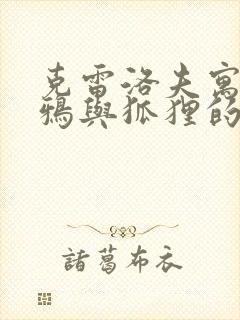 克雷洛夫寓
鴉與狐狸的
諸葛布衣